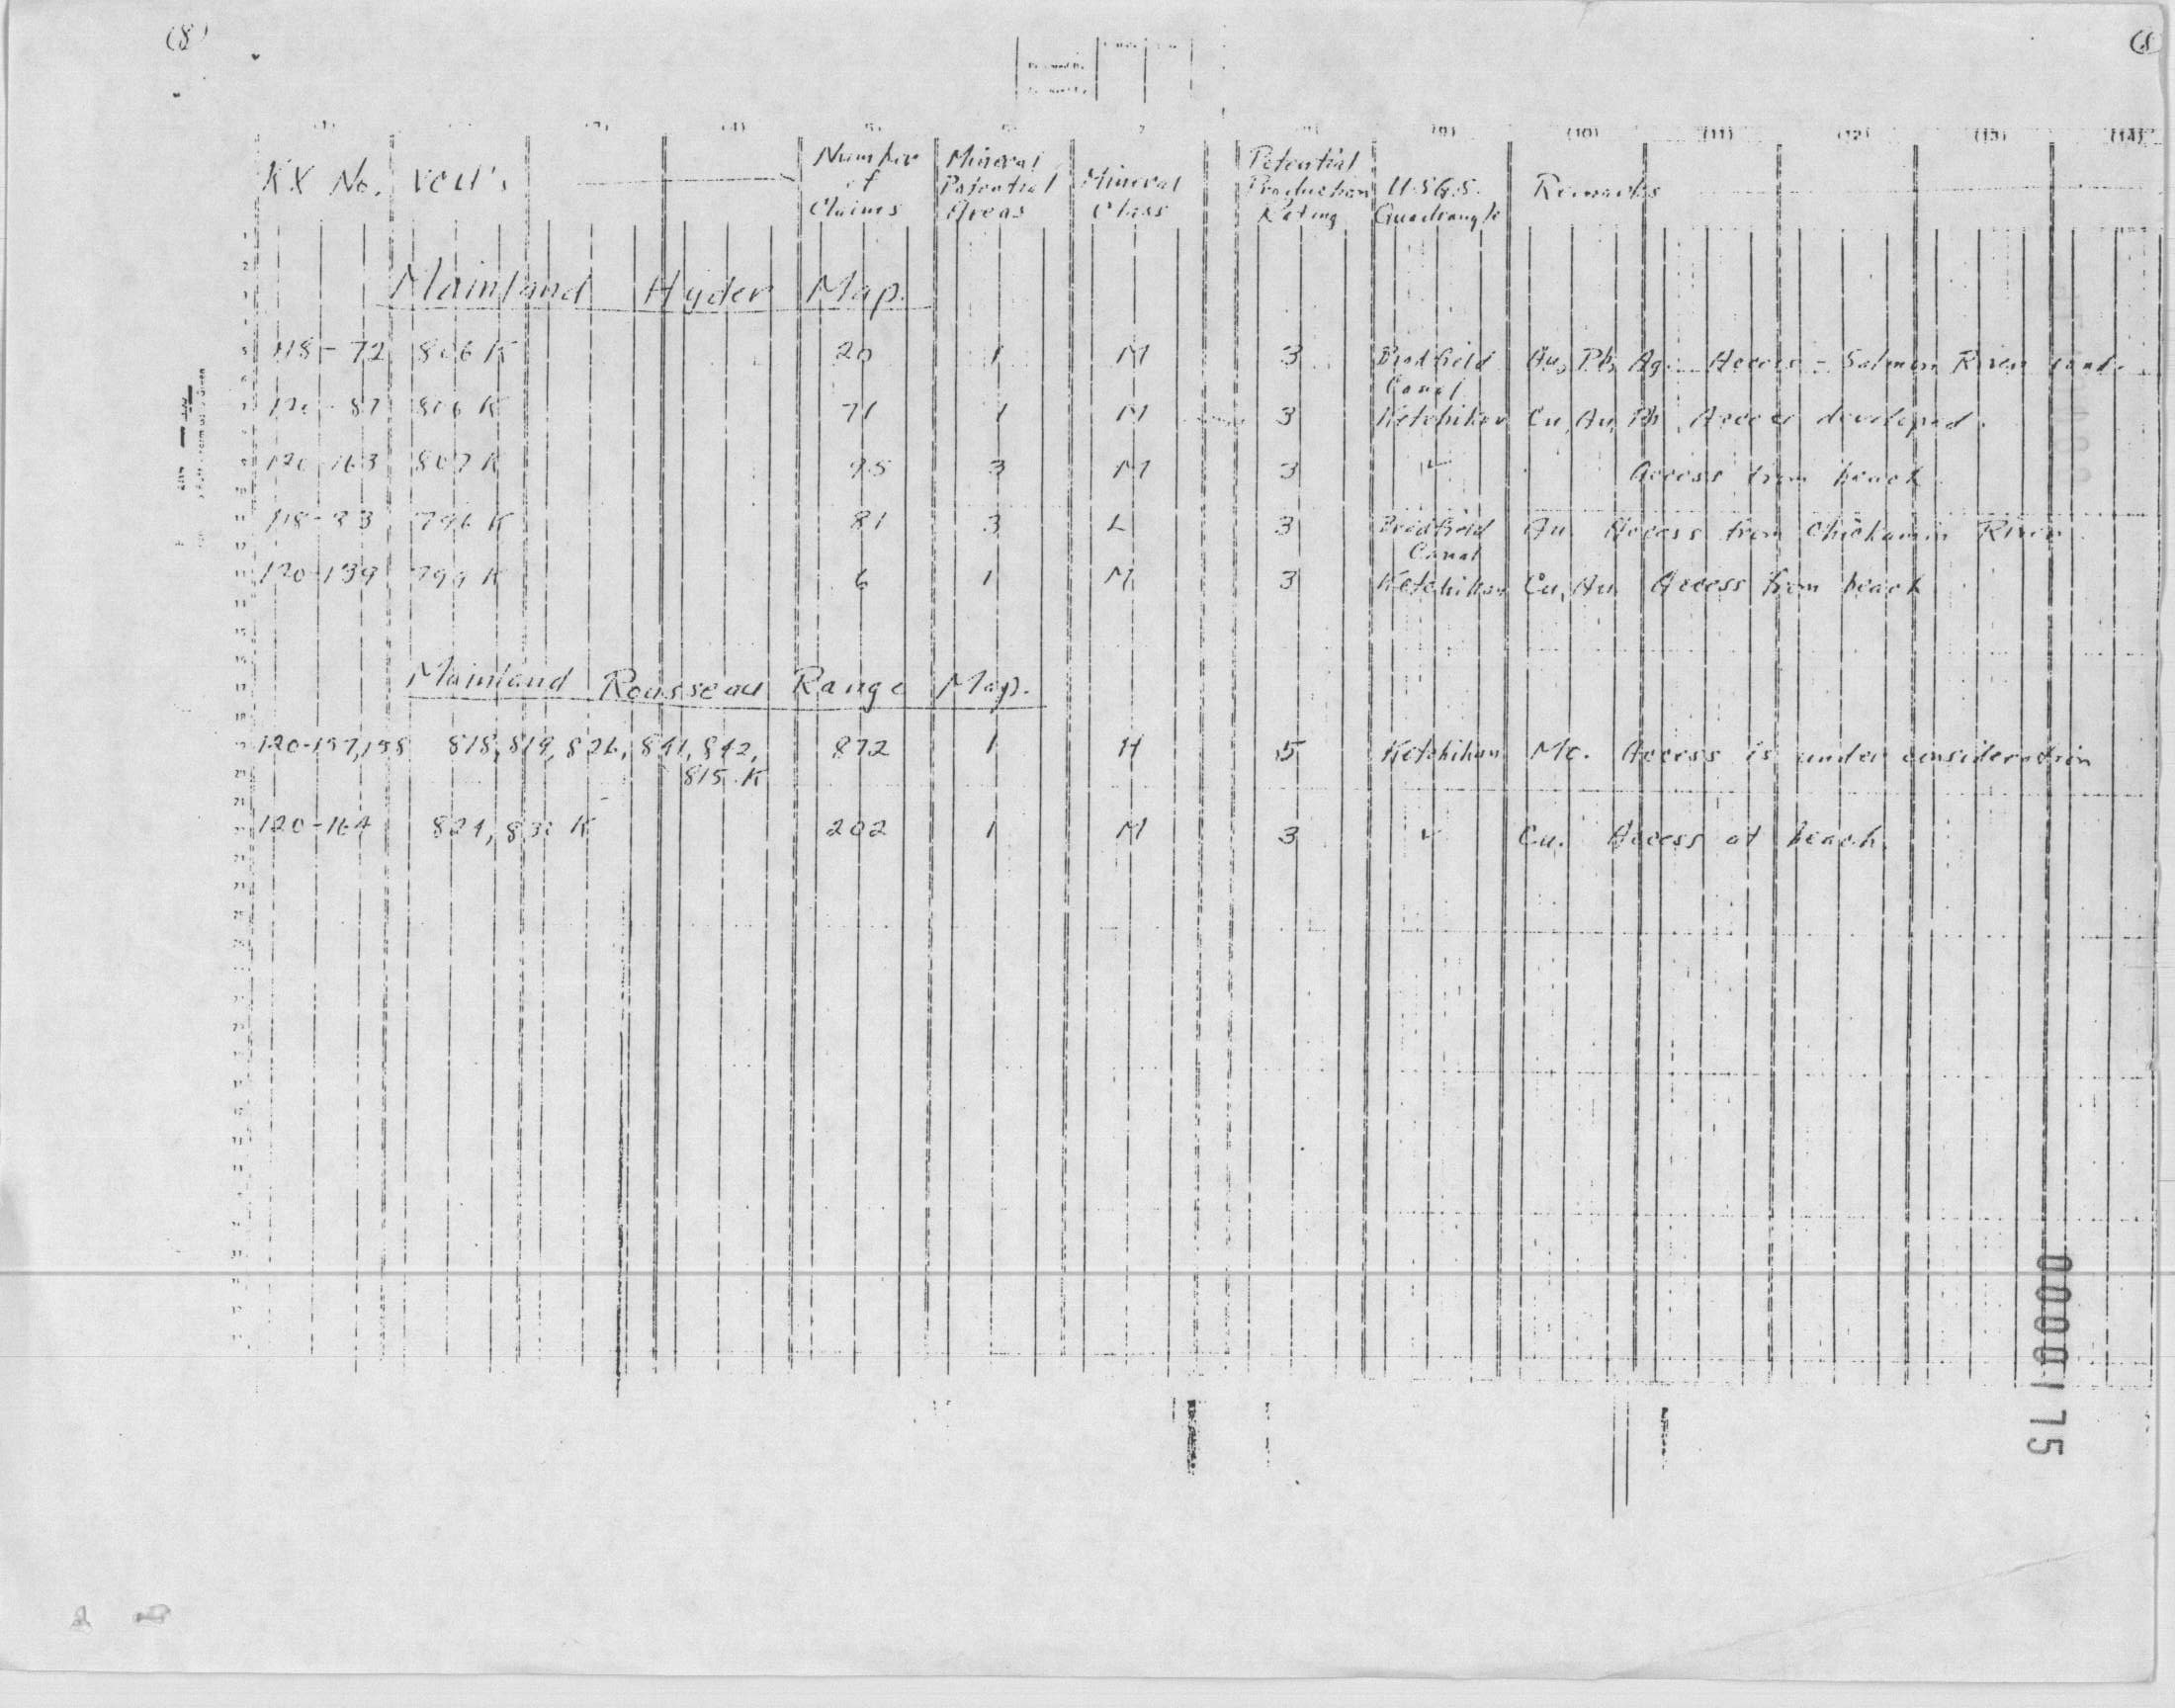 (8) (8)
(9) (10) (11) (12) (13) (14)
KX No. VCU's Number of Claims Mineral Potential Areas Mineral Class Potential Production Rating U.S.G.S. Quadrangle Remarks
Mainland Hyder Map.
118-72 806 K 20 1 M 3 Bradfield Canal Au, Pb, Ag. Access - Salmon River road.
120-87 806 K 71 1 M 3 Ketchikan Cu, Au, Pb Access developed.
120-163 807 K 95 3 M 3 " Access from beach
118-33 796 K 81 3 L 3 Bradfield Canal Au Access from Chickamin River.
120-139 799 K 6 1 M 3 Ketchikan Cu, Au Access from beach
Mainland Rousseau Range Map.
120-157,158 818, 819, 826, 841, 842, 815 K 872 1 H 5 Ketchikan Mo. Access is under consideration
120-164 824, K 202 1 M 3 " Cu. Access at beach.
0000175